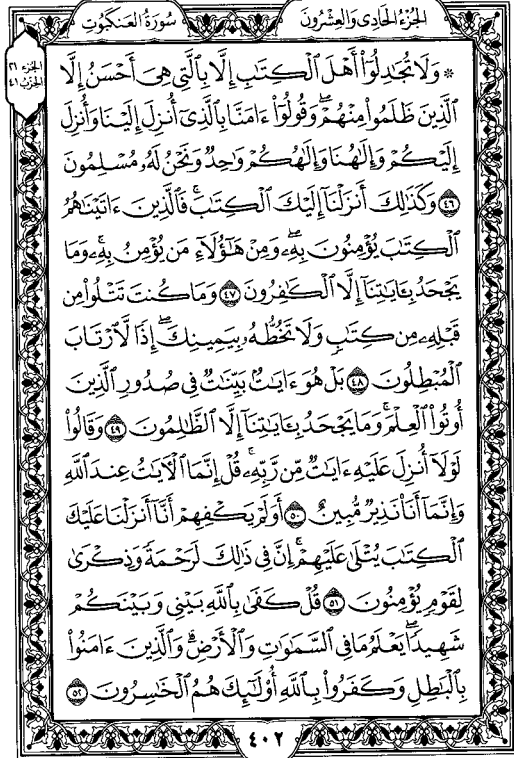 الجُزْءُ الحَادِى وَالعِشْرُونَ
سُورَةُ العَنكَبُوتِ
الجزء ٢١
الحزب ٤١
* وَلَا تُجَٰدِلُوٓا۟ أَهْلَ ٱلْكِتَٰبِ إِلَّا بِٱلَّتِى هِىَ أَحْسَنُ إِلَّا
ٱلَّذِينَ ظَلَمُوا۟ مِنْهُمْ ۖ وَقُولُوٓا۟ ءَامَنَّا بِٱلَّذِىٓ أُنزِلَ إِلَيْنَا وَأُنزِلَ
إِلَيْكُمْ وَإِلَٰهُنَا وَإِلَٰهُكُمْ وَٰحِدٌ وَنَحْنُ لَهُۥ مُسْلِمُونَ
٤٦ وَكَذَٰلِكَ أَنزَلْنَآ إِلَيْكَ ٱلْكِتَٰبَ ۚ فَٱلَّذِينَ ءَاتَيْنَٰهُمُ
ٱلْكِتَٰبَ يُؤْمِنُونَ بِهِۦ ۖ وَمِنْ هَٰٓؤُلَآءِ مَن يُؤْمِنُ بِهِۦ ۚ وَمَا
يَجْحَدُ بِـَٔايَٰتِنَآ إِلَّا ٱلْكَٰفِرُونَ ٤٧ وَمَا كُنتَ تَتْلُوا۟ مِن
قَبْلِهِۦ مِن كِتَٰبٍ وَلَا تَخُطُّهُۥ بِيَمِينِكَ ۖ إِذًا لَّٱرْتَابَ
ٱلْمُبْطِلُونَ ٤٨ بَلْ هُوَ ءَايَٰتٌۢ بَيِّنَٰتٌ فِى صُدُورِ ٱلَّذِينَ
أُوتُوا۟ ٱلْعِلْمَ ۚ وَمَا يَجْحَدُ بِـَٔايَٰتِنَآ إِلَّا ٱلظَّٰلِمُونَ ٤٩ وَقَالُوا۟
لَوْلَآ أُنزِلَ عَلَيْهِ ءَايَٰتٌ مِّن رَّبِّهِۦ ۖ قُلْ إِنَّمَا ٱلْـَٔايَٰتُ عِندَ ٱللَّهِ
وَإِنَّمَآ أَنَا۠ نَذِيرٌ مُّبِينٌ ٥٠ أَوَلَمْ يَكْفِهِمْ أَنَّآ أَنزَلْنَا عَلَيْكَ
ٱلْكِتَٰبَ يُتْلَىٰ عَلَيْهِمْ ۚ إِنَّ فِى ذَٰلِكَ لَرَحْمَةً وَذِكْرَىٰ
لِقَوْمٍ يُؤْمِنُونَ ٥١ قُلْ كَفَىٰ بِٱللَّهِ بَيْنِى وَبَيْنَكُمْ
شَهِيدًا ۖ يَعْلَمُ مَا فِى ٱلسَّمَٰوَٰتِ وَٱلْأَرْضِ ۗ وَٱلَّذِينَ ءَامَنُوا۟
بِٱلْبَٰطِلِ وَكَفَرُوا۟ بِٱللَّهِ أُو۟لَٰٓئِكَ هُمُ ٱلْخَٰسِرُونَ ٥٢
٤٠٢